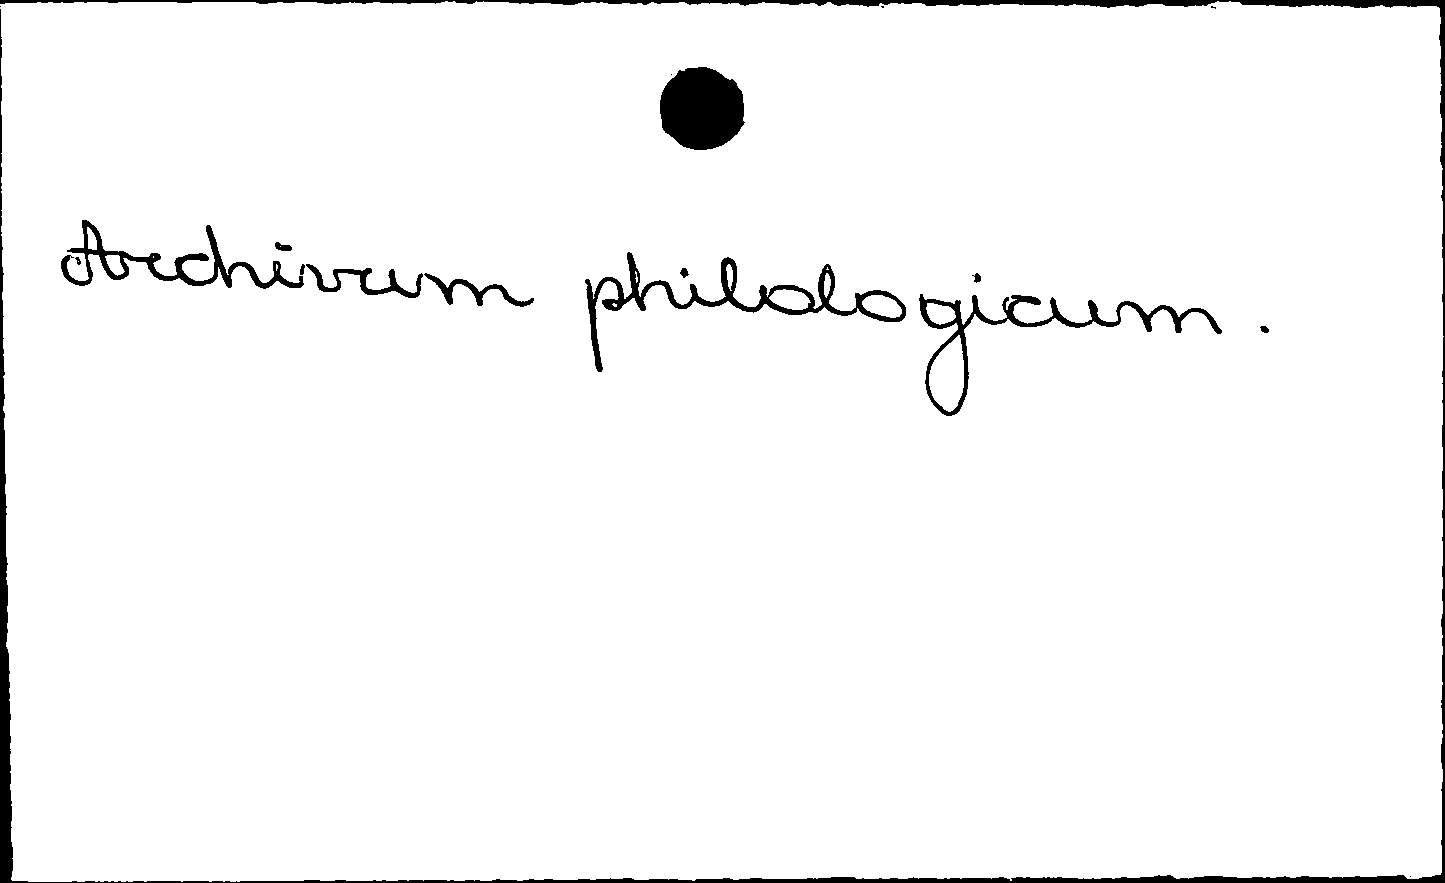 Archivum philologicum.